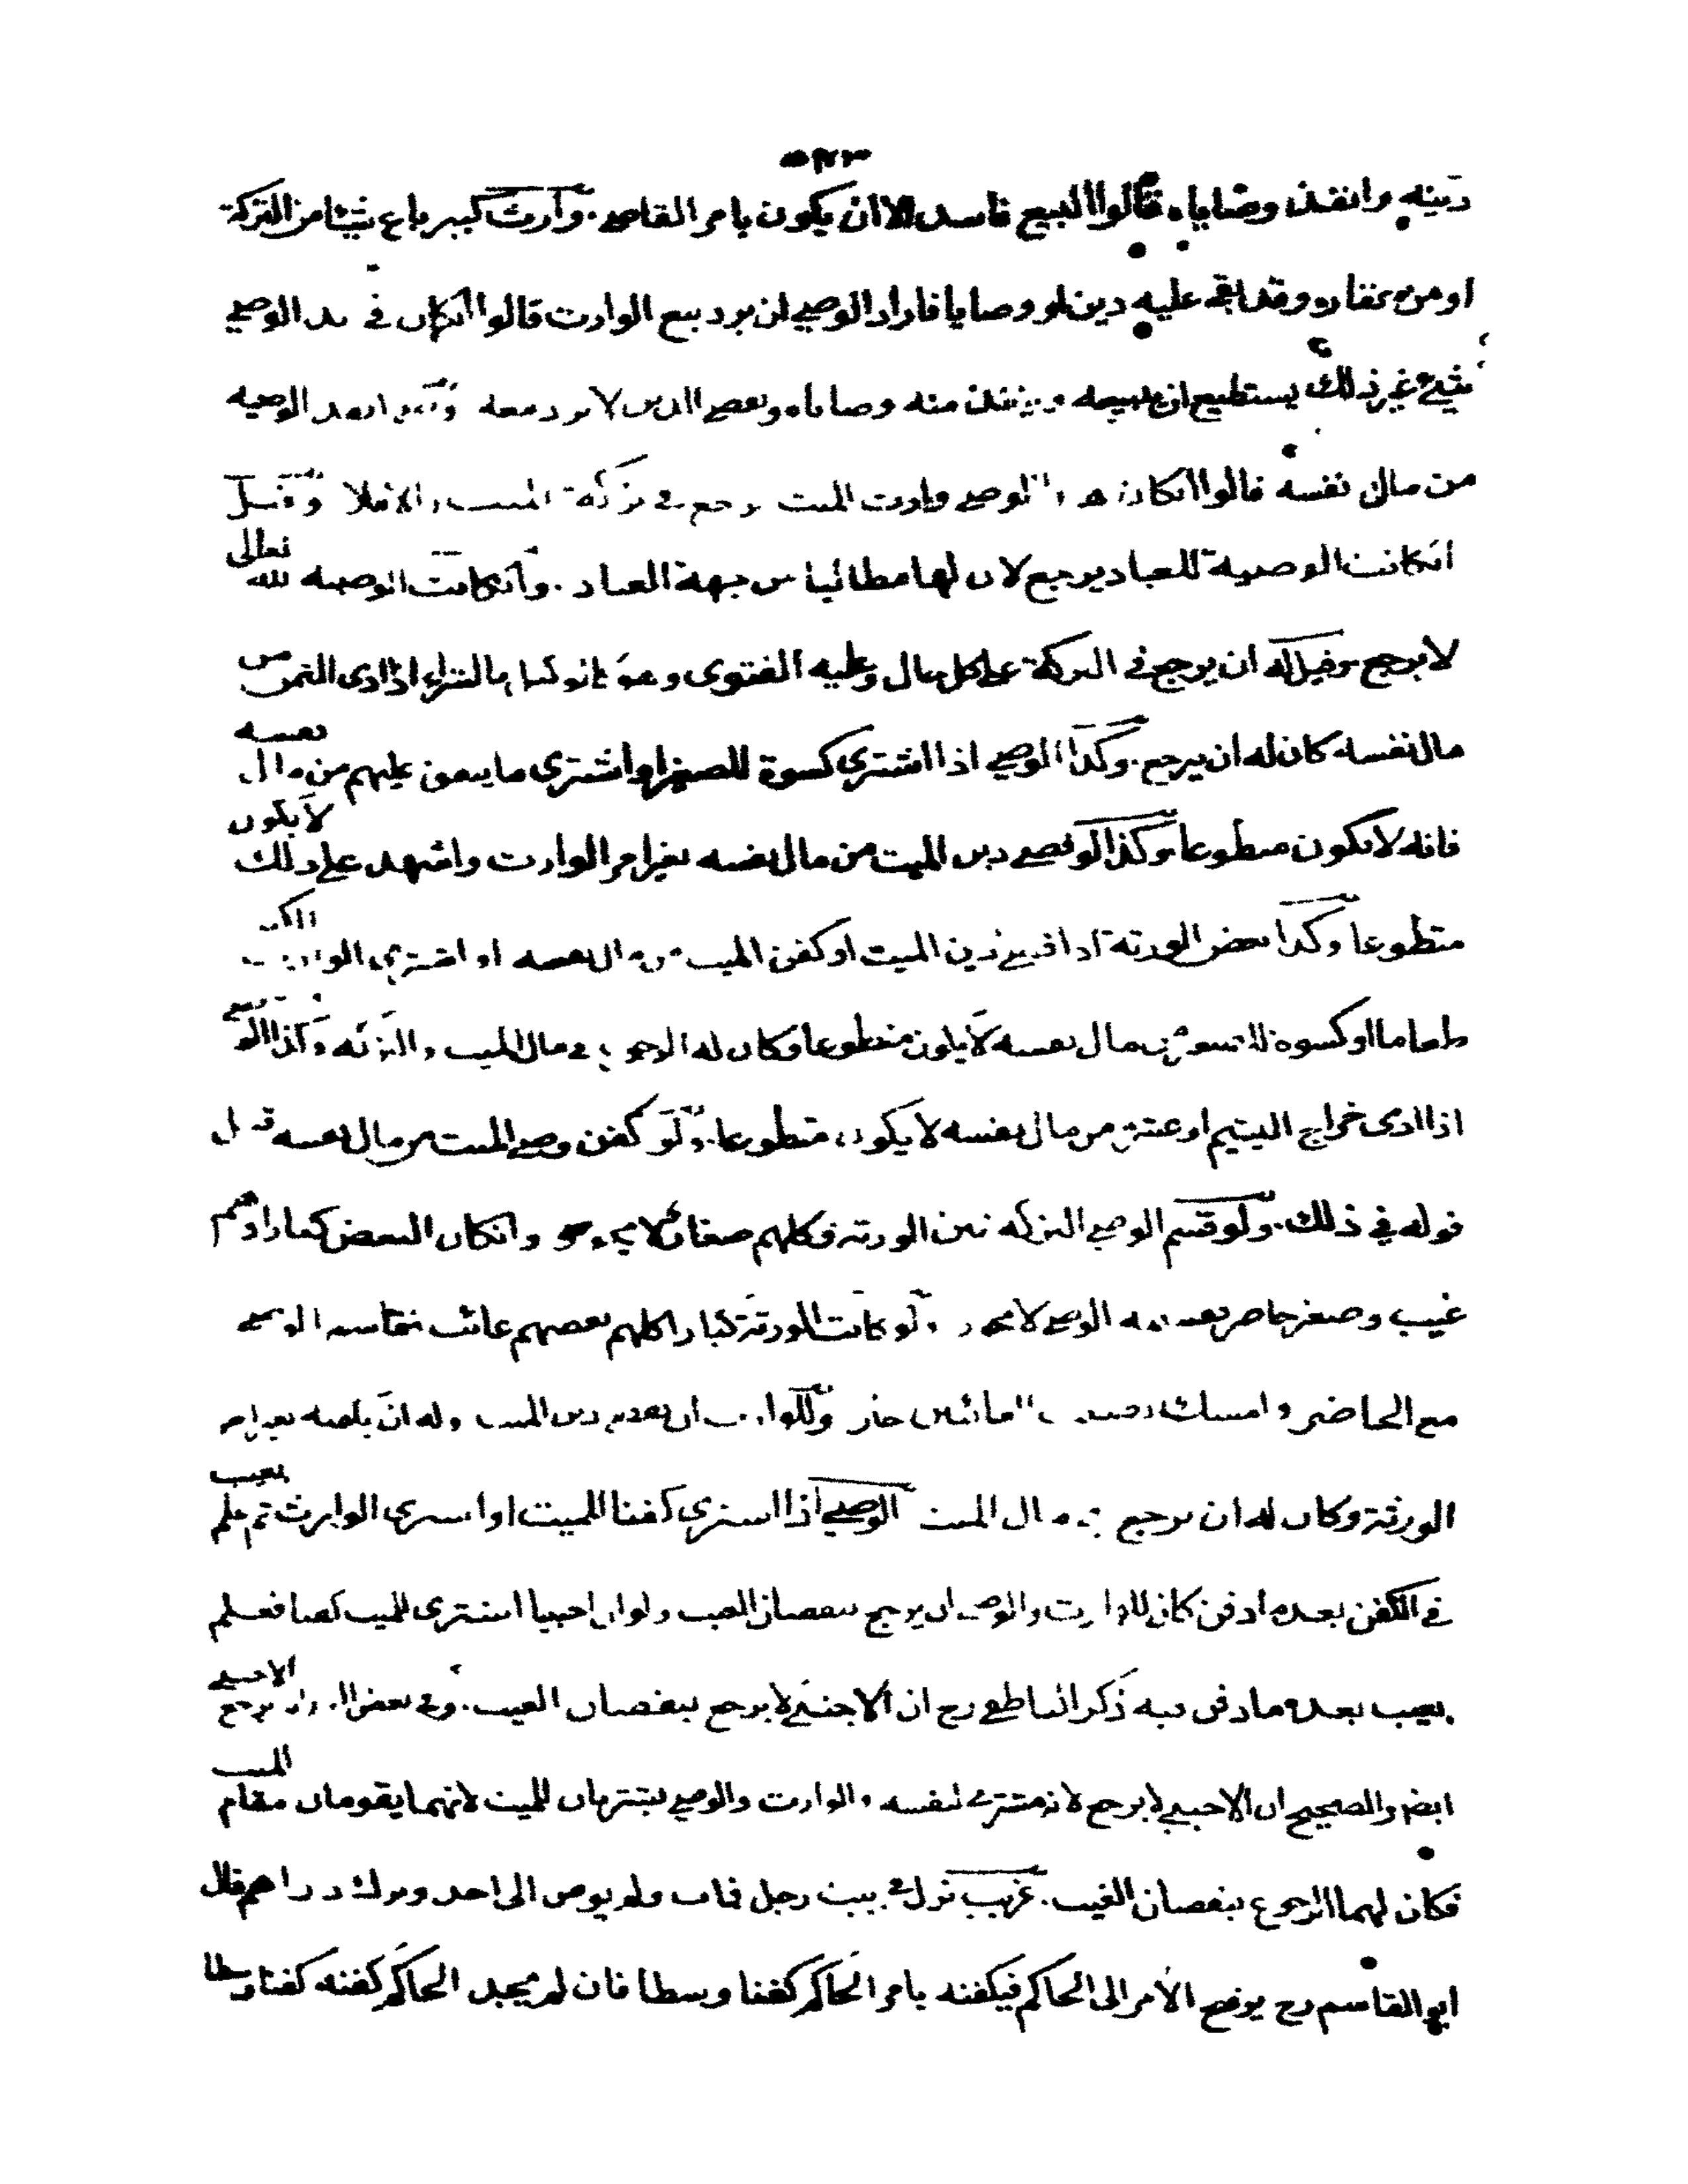 دينه وانفذ وصاياه قالوا البيع فاسد الا ان يكون بامر القاضي. وارث كبير باع شيئا من التركة
او من عقاره وقد بقي عليه دين او وصايا فاراد الوصي ان يرد بيع الوارث قالوا انكان في يد الوصي
شيئ غير ذلك يستطيع ان يبيعه وينفذ منه وصاياه ويقضي الدين لا يرد بيعه الوصية
من مال نفسه قالوا انكان هذا الوصي وارث الميت يرجع في تركة الميت والا فلا وقيل
انكانت الوصية للعباد يرجع لان لها مطالبا من جهة العباد. وانكانت الوصية لله تعالى
لا يرجع وقيل له ان يرجع في التركة على كل حال وعليه الفتوى بالشراء اذا ادى الثمن من
مال نفسه كان له ان يرجع. وكذا الوصي اذا اشترى كسوة للصغير او اشترى ما ينفق عليهم من مال نفسه
فانه لا يكون متطوعا وكذا لو قضى دين الميت من مال نفسه بغير امر الوارث واشهد على ذلك لا يكون
متطوعا وكذا بعض الورثة اذا قضى دين الميت او كفن الميت من مال نفسه او اشترى الوارث الكبير
طعاما او كسوة للصغير من مال نفسه لا يكون متطوعا وكان له الرجوع في مال الميت والتركة وكذا الوصي
اذا ادى خراج اليتيم او عشره من مال نفسه لا يكون متطوعا. ولو كفن وصي الميت من مال نفسه قبل
قوله في ذلك. ولو قسم الوصي التركة بين الورثة وكلهم صغار لا يجوز وانكان البعض كبارا وهم
غيب وصغير حاضر الوصي لا يجوز ولو كانت الورثة كبارا كلهم بعضهم غائب فقاسم الوصي
مع الحاضر وامسك نصيب الغائبين جاز وللوارث ان يقضي دين الميت وله ان يكفنه بغير امر
الورثة وكان له ان يرجع في مال الميت الوصي اذا اشترى كفنا للميت او اشترى الوارث ثم علم بعيب
في الكفن بعد ما دفن كان للوارث والوصي ان يرجع بنقصان العيب ولو ان اجنبيا اشترى للميت كفنا فعلم
بعيب بعد ما دفن فيه ذكر الناطفي رح ان الاجنبي لا يرجع بنقصان العيب. وفي بعض يرجع الاجنبي
ايضا والصحيح ان الاجنبي لا يرجع لانه مشتري لنفسه والوارث والوصي يشتريان للميت لانهما يقومان مقام الميت
فكان لهما الرجوع بنقصان العيب. غريب نزل في بيت رجل فمات ولم يوص الى احد وترك دراهم قال
ابو القاسم رح يرفع الامر الى الحاكم فيكفنه بامر الحاكم كفنا وسطا فان لم يجد الحاكم كفنه كفنا وسطا